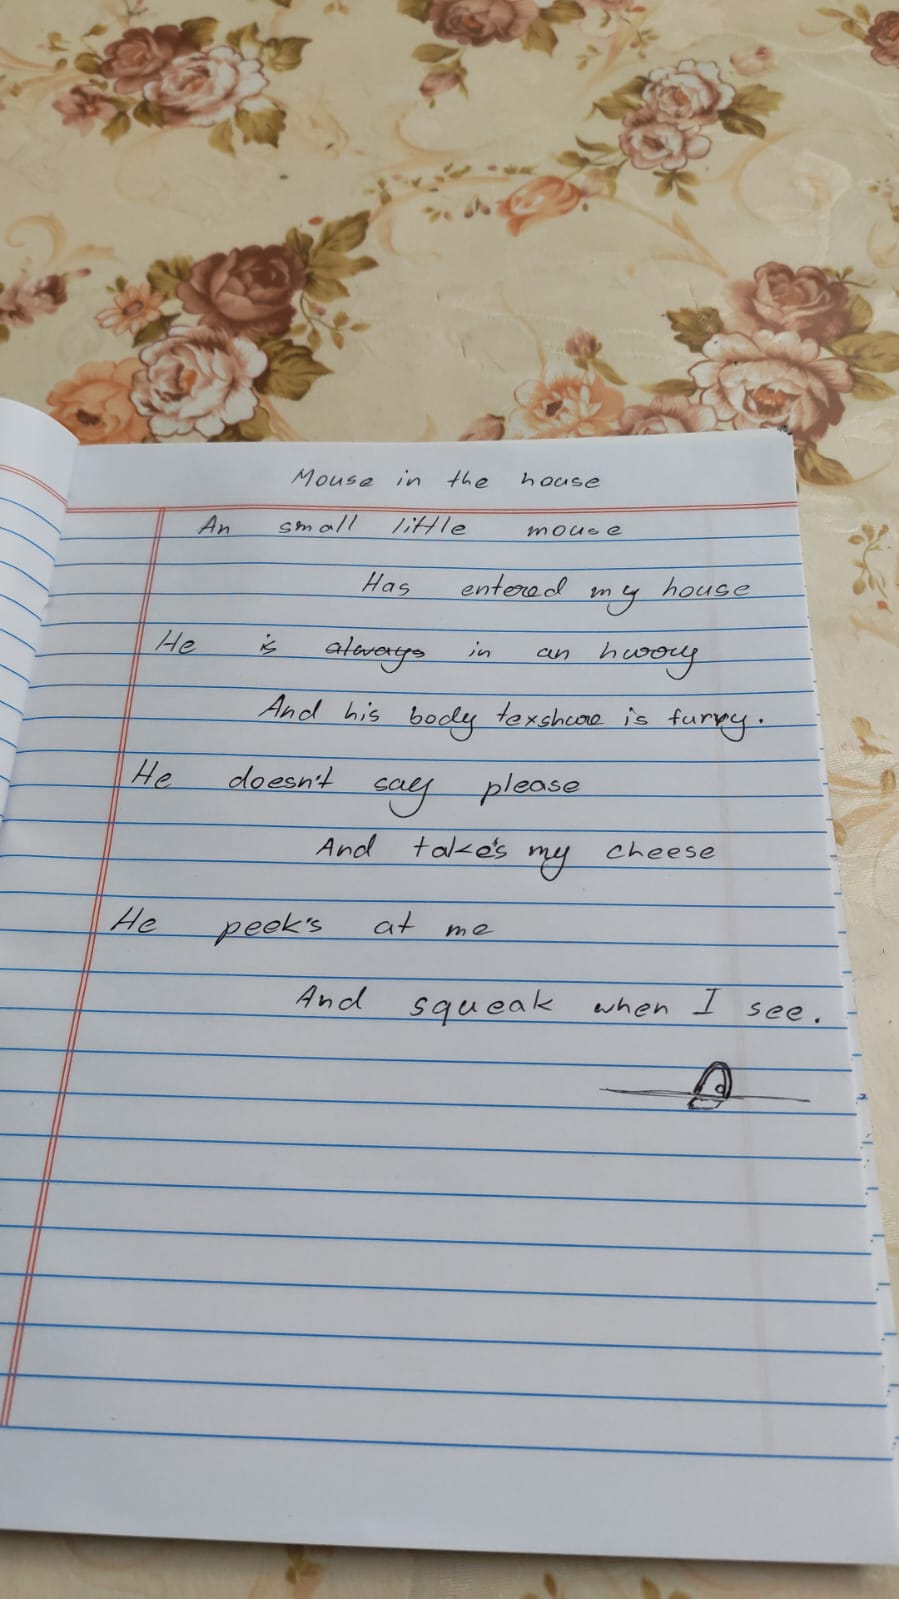 Mouse in the house
An small little mouse
Has entered my house
He is always in an hurry
And his body texshure is furry.
He doesn't say please
And take's my cheese
He peek's at me
And squeak when I see.